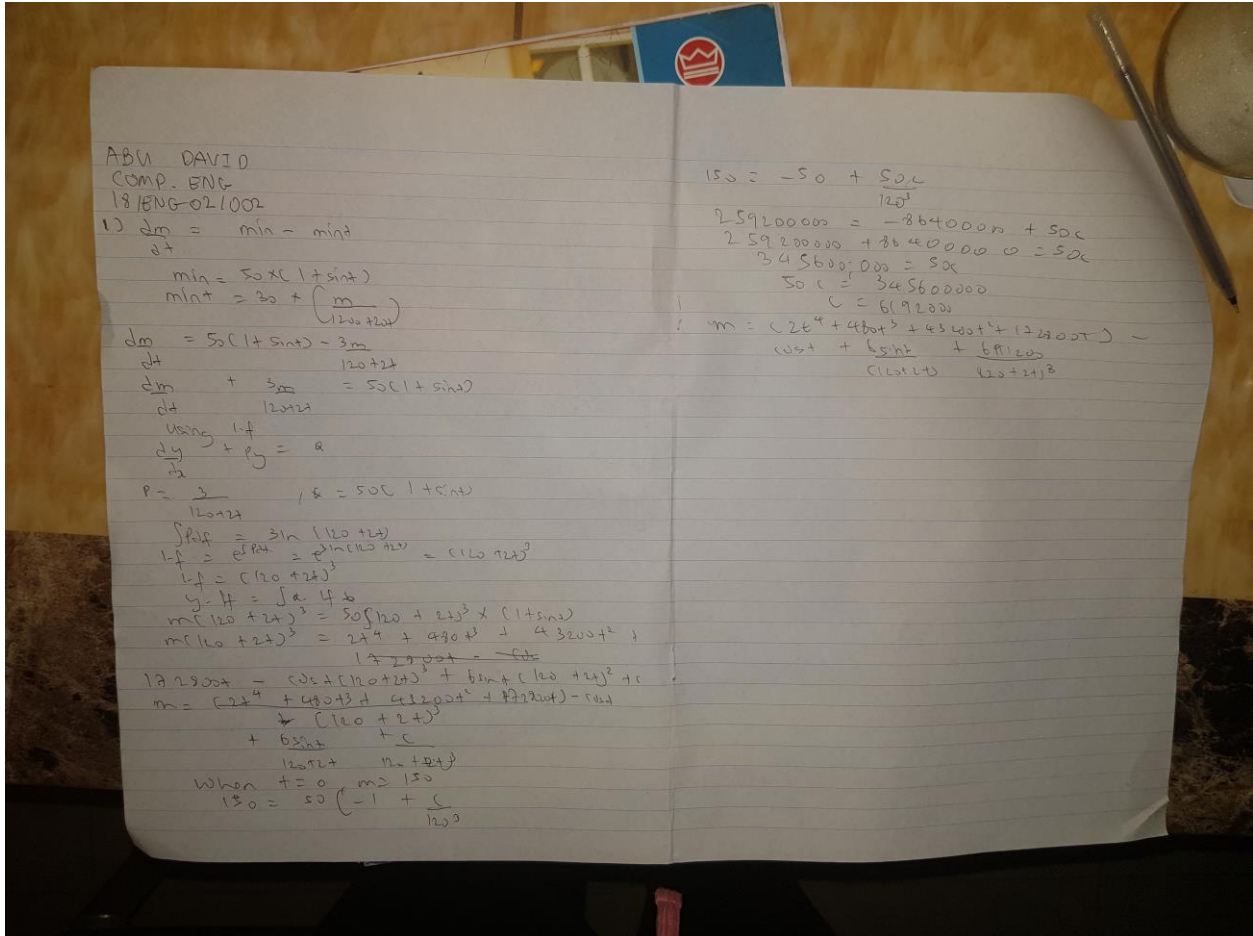 ABU DAVID
COMP. ENG
18/ENG02/002
1) dm/dt = min - mint
min = 50 x (1 + sint)
mint = 30 + (m/(1200+2t))
dm/dt = 50(1 + sint) - 3m/(120+2t)
dm/dt + 3m/(120+2t) = 50(1 + sint)
using I.f
dy/dx + Py = Q
P = 3/(120+2t) , Q = 50(1+sint)
∫Pdt = 3ln(120+2t)
I.f = e^∫Pdt = e^3ln(120+2t) = (120+2t)^3
I.f = (120+2t)^3
m(120+2t)^3 = 50∫(120+2t)^3 x (1+sint)
m(120+2t)^3 = 2t^4 + 480t^3 + 43200t^2 +
172800t - cost(120+2t)^3 + 6sint(120+2t)^2 + c
m = (2t^4 + 480t3 + 43200t^2 + 172800t) - cost
(120+2t)^3
+ 6sint/(120+2t) + c/(120+2t)^3
When t=0, m=150
150 = 50(-1 + c/120^3
150 = -50 + 50c/120^3
259200000 = -86400000 + 50c
259200000 + 86400000 = 50c
345600000 = 50c
50c = 345600000
c = 6192000
m = (2t^4 + 480t^3 + 43200t^2 + 172800t) -
cost + 6sint/(120+2t) + 6912000/(120+2t)^3